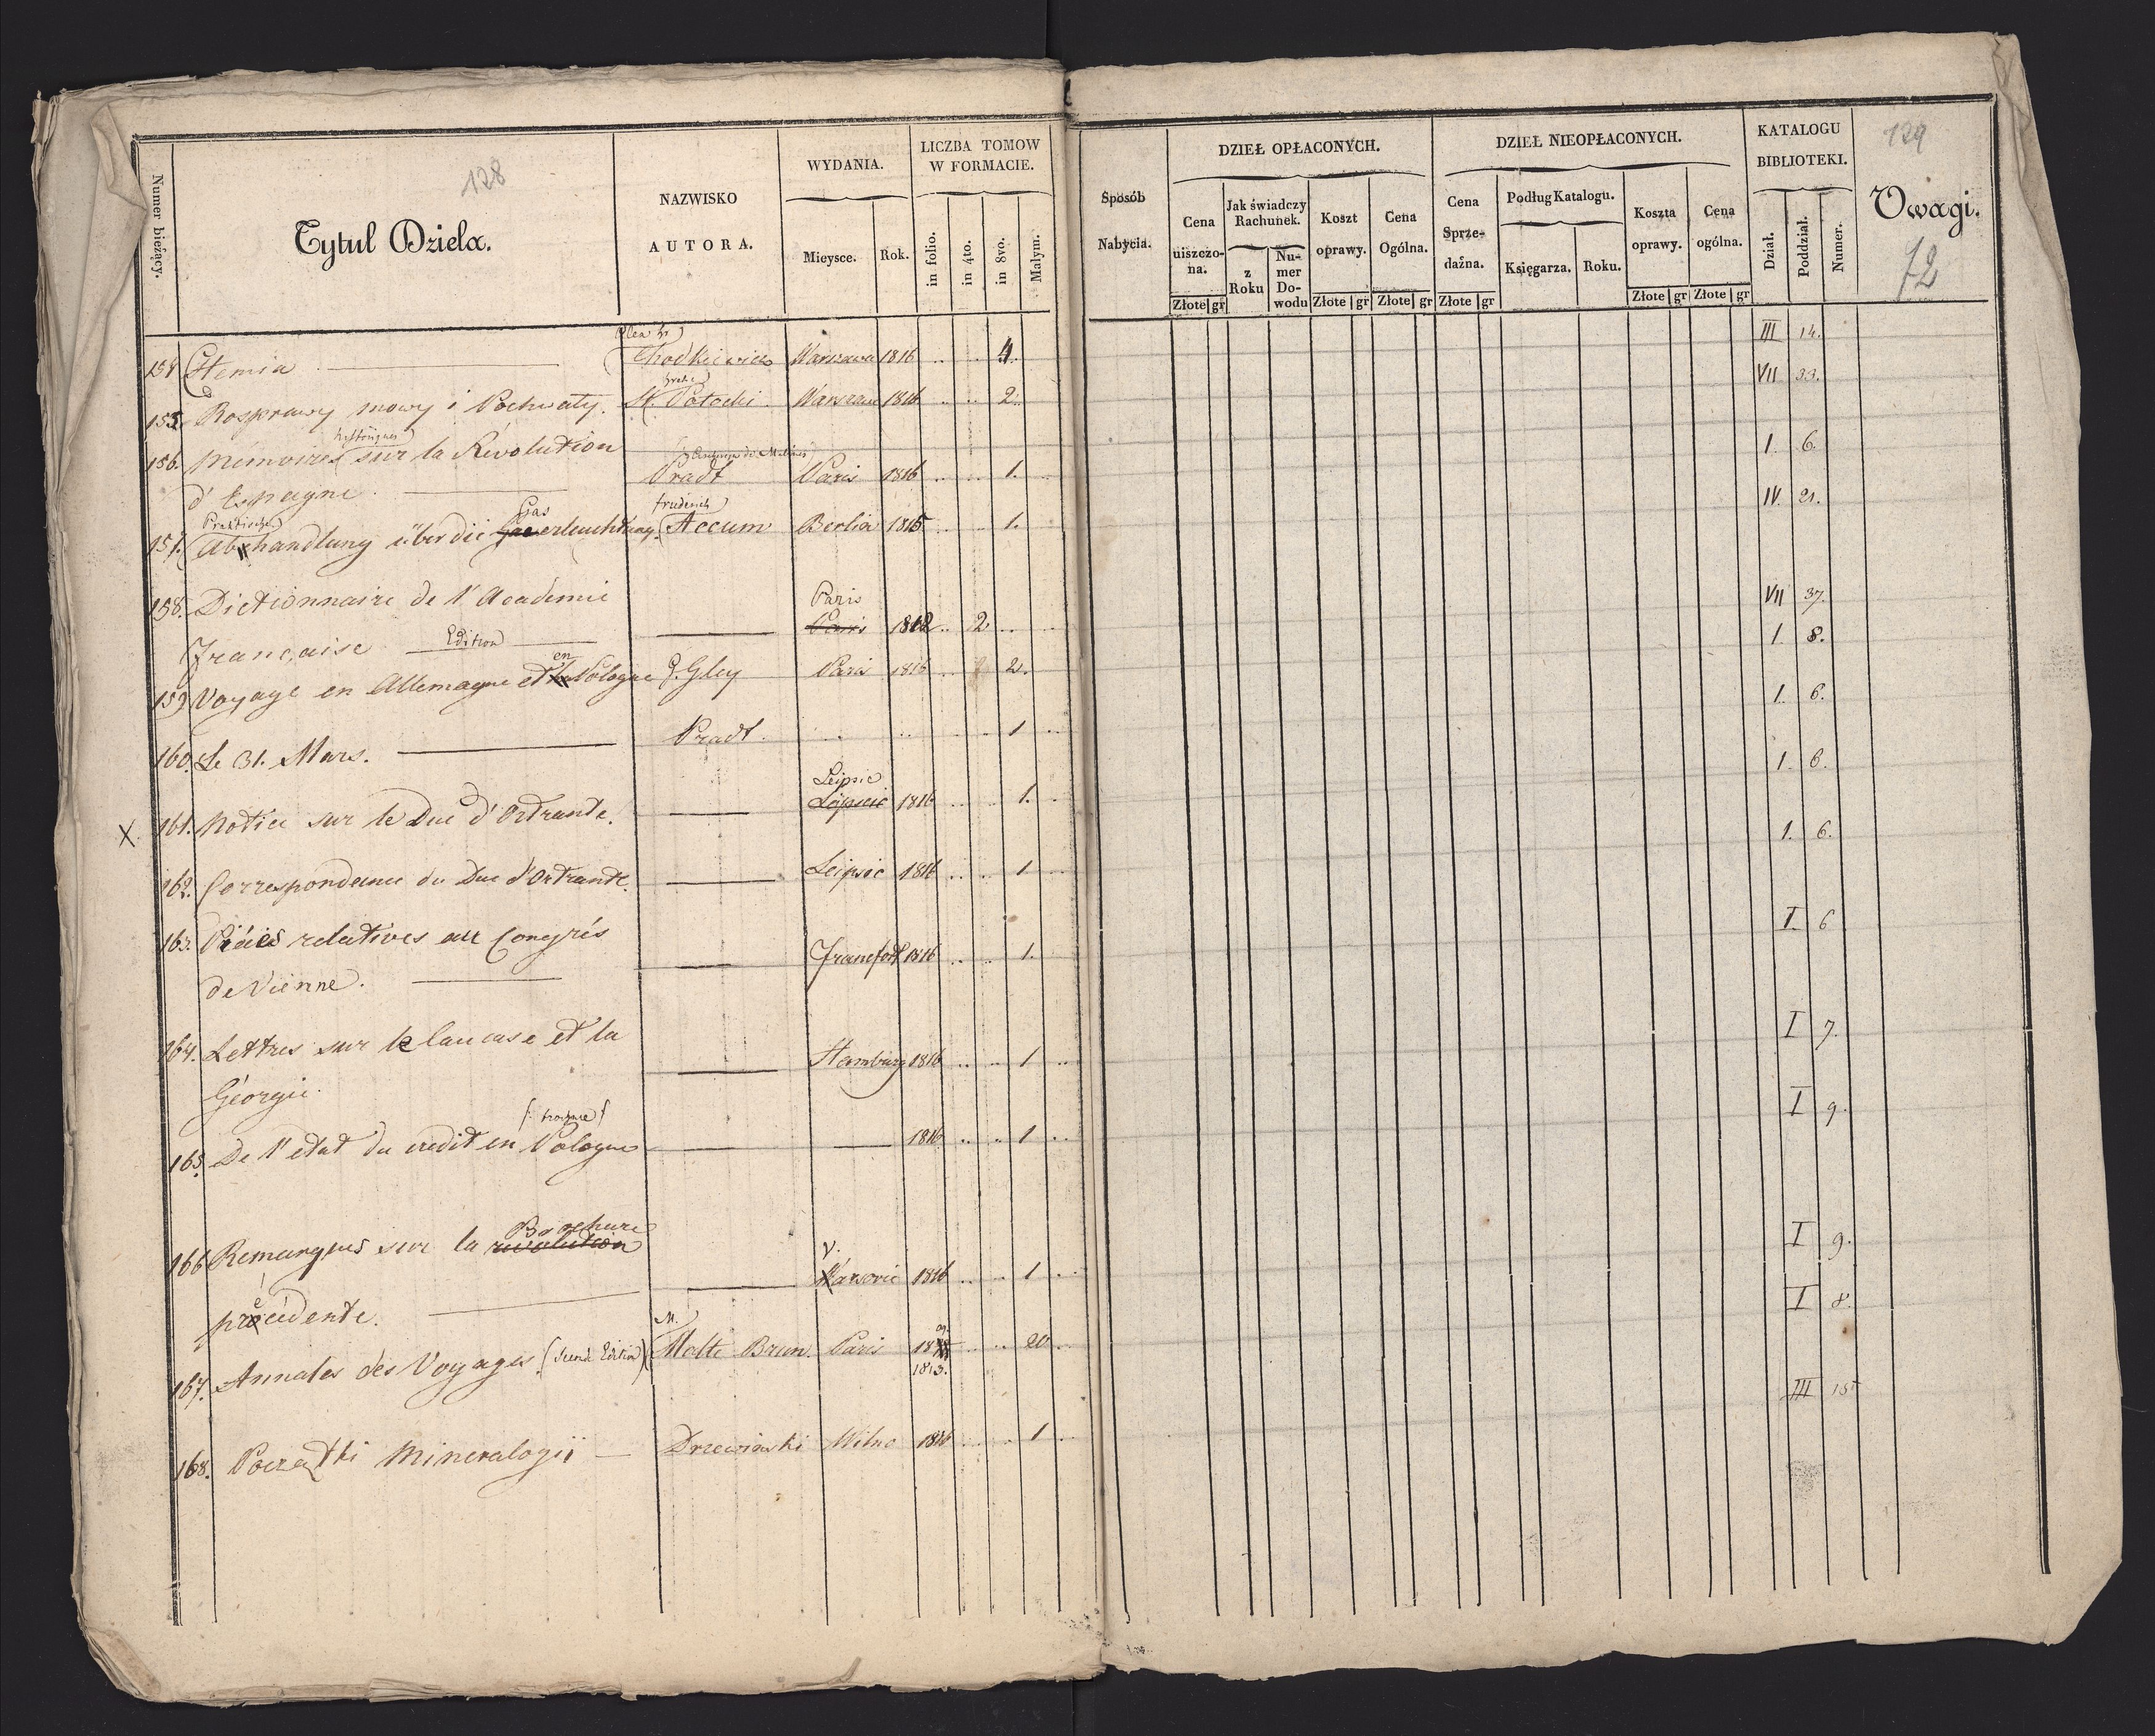 128
Numer bieżący.
Tytuł Dzieła.
NAZWISKO
AUTORA.
WYDANIA.
Mieysce.
Rok.
LICZBA TOMOW
W FORMACIE.
in folio.
in 4to.
in 8vo.
Małym.
154 Chemia Chodkiewicz Warszawa 1816 .. .. 4.
hrabia
155. Rosprawy mowy i Pochwały. St. Potocki. Warszawa 1816 .. .. 2.
historiques
156. Mémoires sur la Révolution
d'Espagne. Pradt Paris 1816 .. .. 1.
Praktische Gas
157. Abhandlung über die Gaserleuchtung. Accum Berlin 1815 .. .. 1.
158. Dictionnaire de l'Academie Paris
Française Edition Paris 1812 .. 2. ..
en
159 Voyage en Allemagne et la Pologne G. Gley Paris 1816 .. 2.
160. Le 31. Mars. Pradt. .. .. .. 1 ..
Leipsic
X. 161. Notice sur le Duc d'Ortrante. Leipsic 1816 .. .. 1.
162. Correspondence du Duc d'Ortrante. Leipsic 1816 .. .. 1
163. Piéces relatives au Congrès
de Vienne. Francfort 1816 .. .. 1.
164. Lettres sur le Caucase et la
Géorgie. Hamburg 1816 .. .. 1 ..
165. De l'etat du credit en Pologne 1816 .. .. 1 ..
Brochure
166 Remarques sur la revolution
V.
précédente. Warsovie 1816 .. .. 1 ..
M.
167. Annales des Voyages. Malte Brun. Paris 18 .. .. 20 ..
1813.
168. Początki Mineralogii Drzewiński Wilno 1816 .. .. 1 ..
Sposób
Nabycia.
DZIEŁ OPŁACONYCH.
Cena
uiszczo-
na.
Złote gr
Jak świadczy
Rachunek.
z
Roku
Nu-
mer
Do-
wodu
Koszt
oprawy.
Złote gr
Cena
Ogólna.
Złote gr
DZIEŁ NIEOPŁACONYCH.
Cena
Sprze-
dażna.
Złote gr
Podług Katalogu.
Księgarza. Roku.
Koszta
oprawy.
Złote gr
Cena
ogólna.
Złote gr
KATALOGU
BIBLIOTEKI.
Dział.
Poddział.
Numer.
129
Uwagi.
72
III 14.
VII 33.
I. 6.
IV. 21.
VII 37.
I. 8.
I. 6.
I. 6.
I. 6.
I. 6
I 7.
I 9.
I 9.
I 8.
III 15